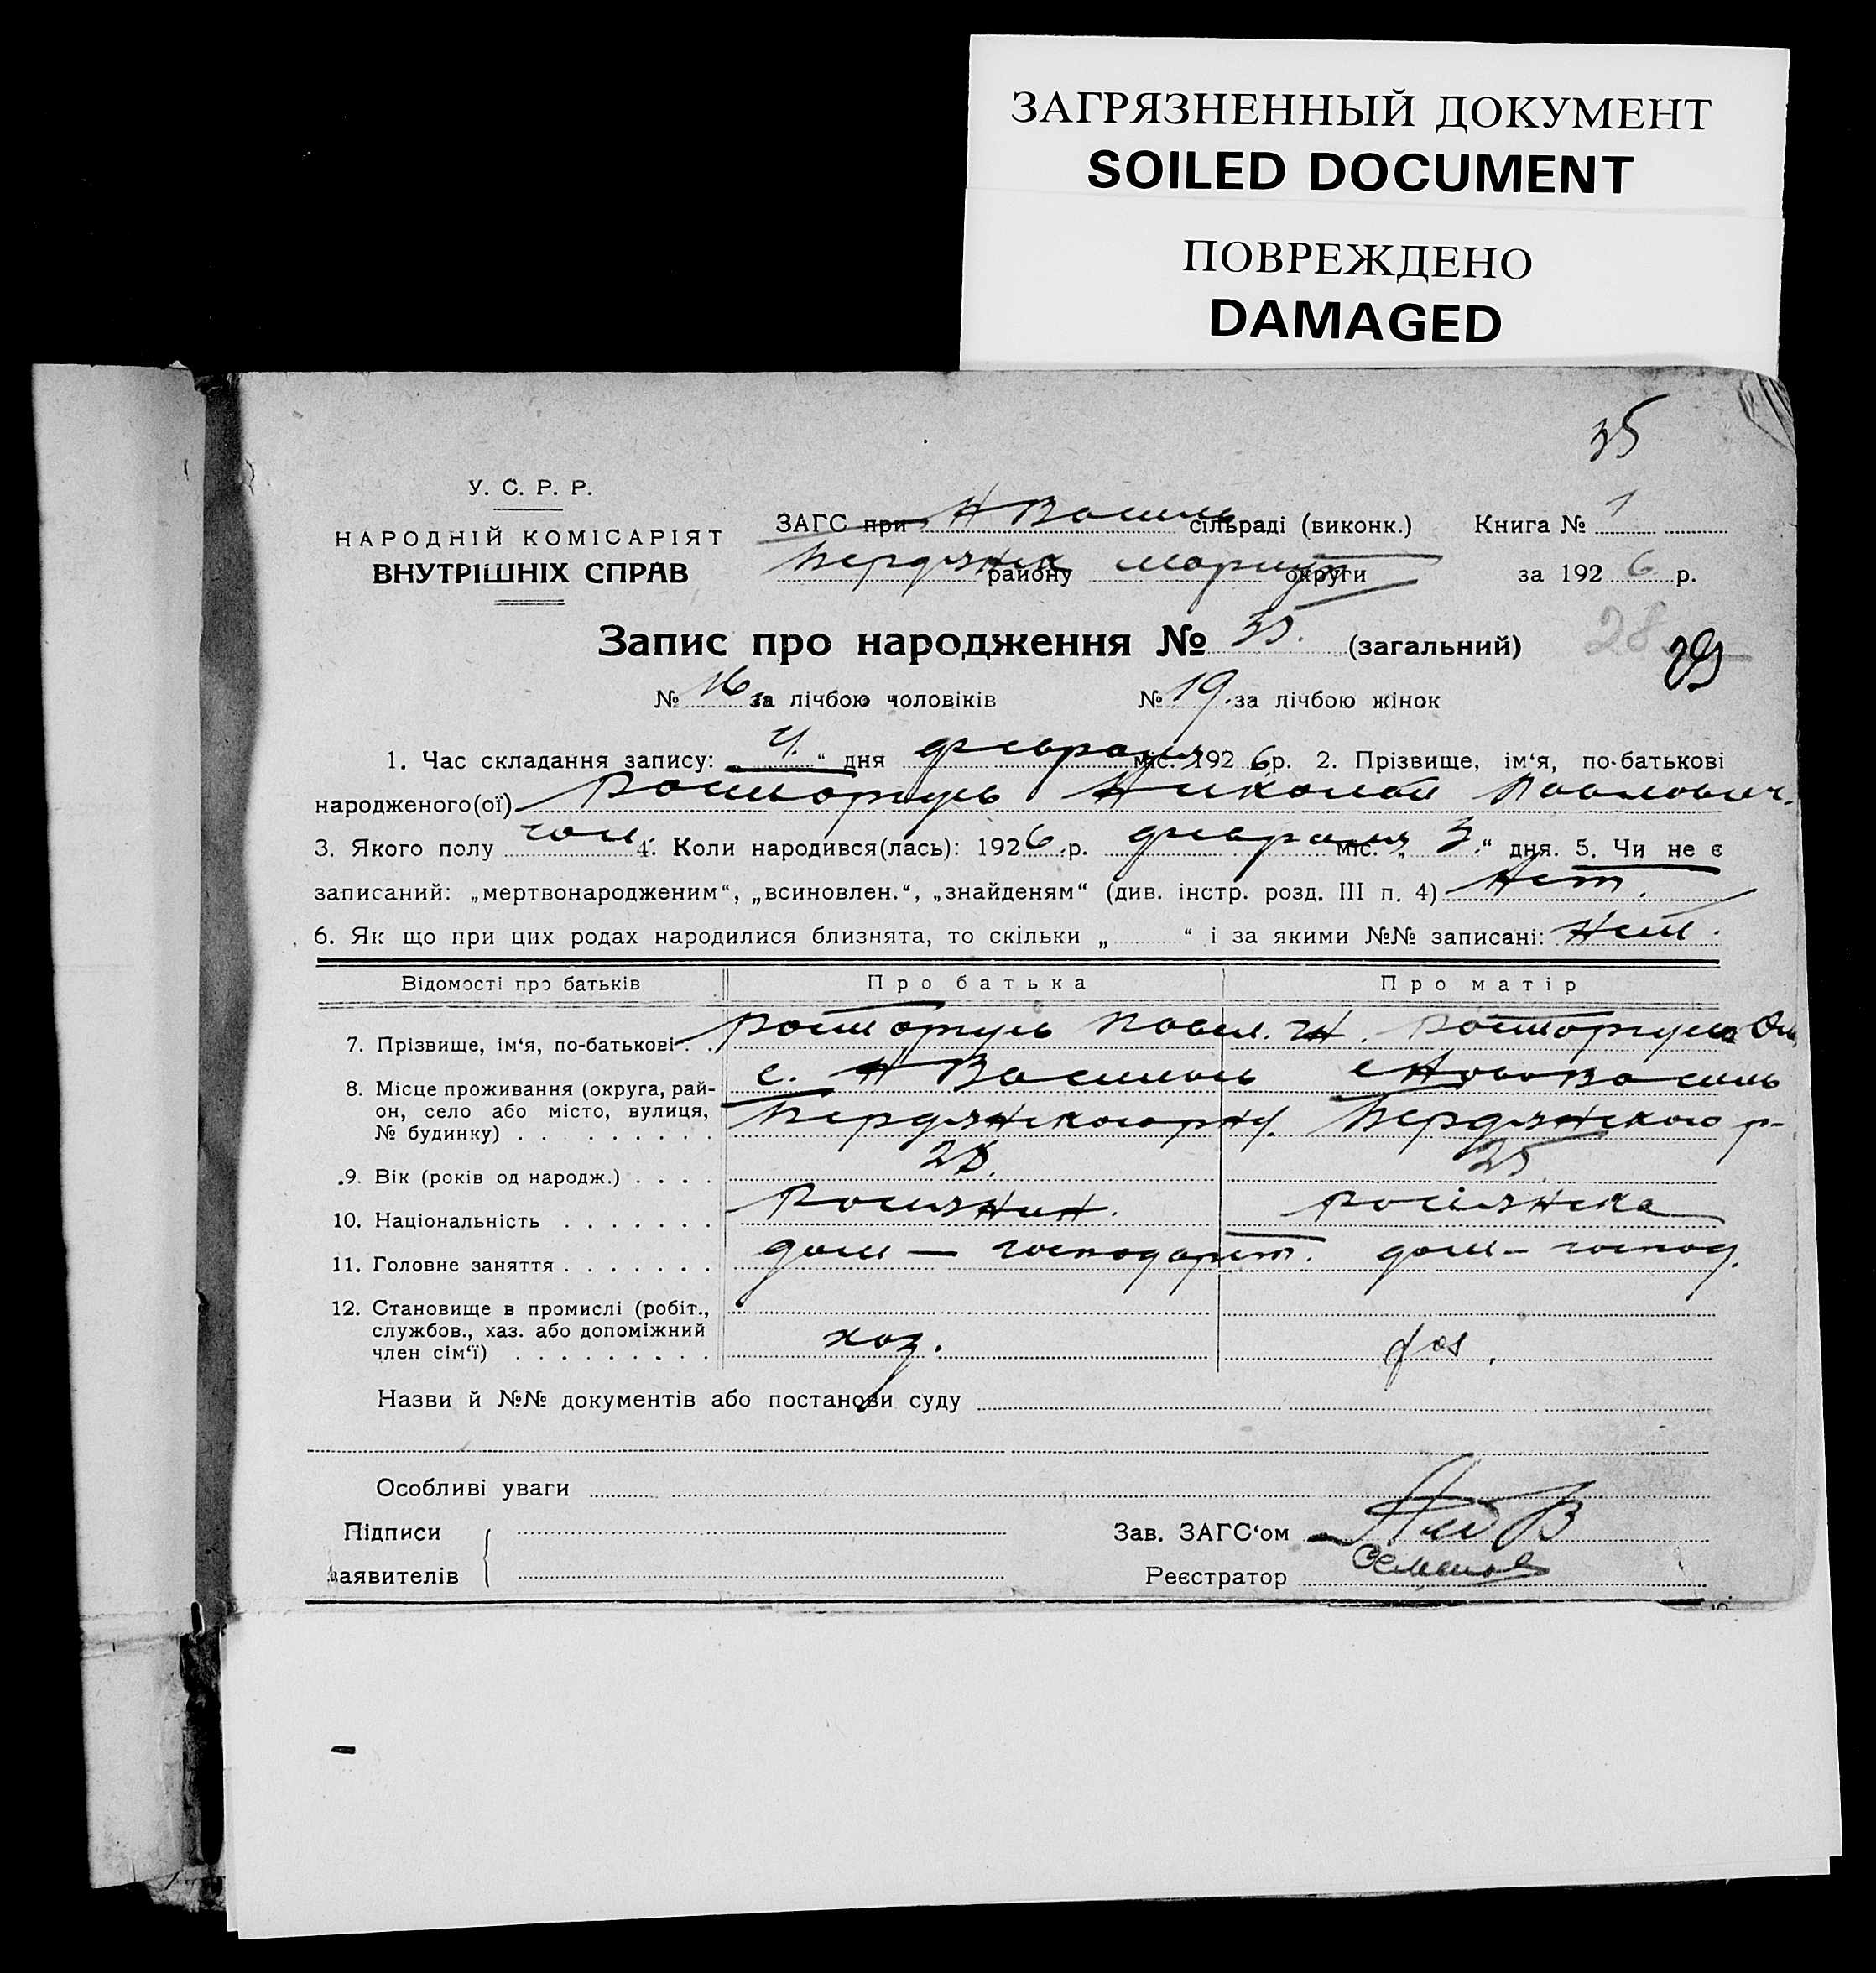 ЗАГРЯЗНЕННЫЙ ДОКУМЕНТ
SOILED DOCUMENT
ПОВРЕЖДЕНО
DAMAGED
35
У. С. Р. Р.
НАРОДНІЙ КОМІСАРІЯТ
ВНУТРІШНІХ СПРАВ
ЗАГС при Н Василь сільраді (виконк.) Книга № 1
Бердянск району Мариуп округи за 1926 р.
Запис про народження № 35. (загальний) 28
№ 16 за лічбою чоловіків № 19. за лічбою жінок
1. Час складання запису: „4.“ дня февраля міс. 1926 р. 2. Прізвище, ім‘я, по-батькові
народженого(ої) Расторгуев Николай Павлович.
3. Якого полу чол. 4. Коли народився(лась): 1926 р. февраля міс. „3.“ дня. 5. Чи не є
записаний: „мертвонародженим“, „всиновлен.“, „знайденям“ (див. інстр. розд. III п. 4) Нет.
6. Як що при цих родах народилися близнята, то скільки „ “ і за якими №№ записані: Нет.
Відомості про батьків Про батька Про матір
7. Прізвище, ім‘я, по-батькові . . Расторгуев Павел. Расторгуева
8. Місце проживання (округа, рай- с. Н Василь с Ново Василь
он, село або місто, вулиця, Бердянского Бердянского р-
№ будинку) . . . . . . . . .
9. Вік (років од народж.) . . . . 28. 25
10. Національність . . . . . . . Росиянин. росіянка
11. Головне заняття . . . . . . . дом — господарст. дом — господ.
12. Становище в промислі (робіт.,
службов., хаз. або допоміжний
член сім‘ї) . . . . . . . . . хоз.
Назви й №№ документів або постанови суду
Особливі уваги
Підписи
заявителів
Зав. ЗАГС‘ом
Реєстратор